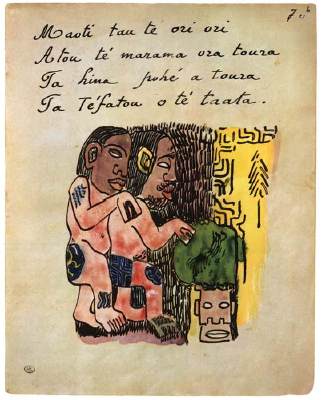 7.
Maoti tau té ori ori
Atou té marama ora toura
Ta hina pohé a toura
Ta Téfatou o té taata.